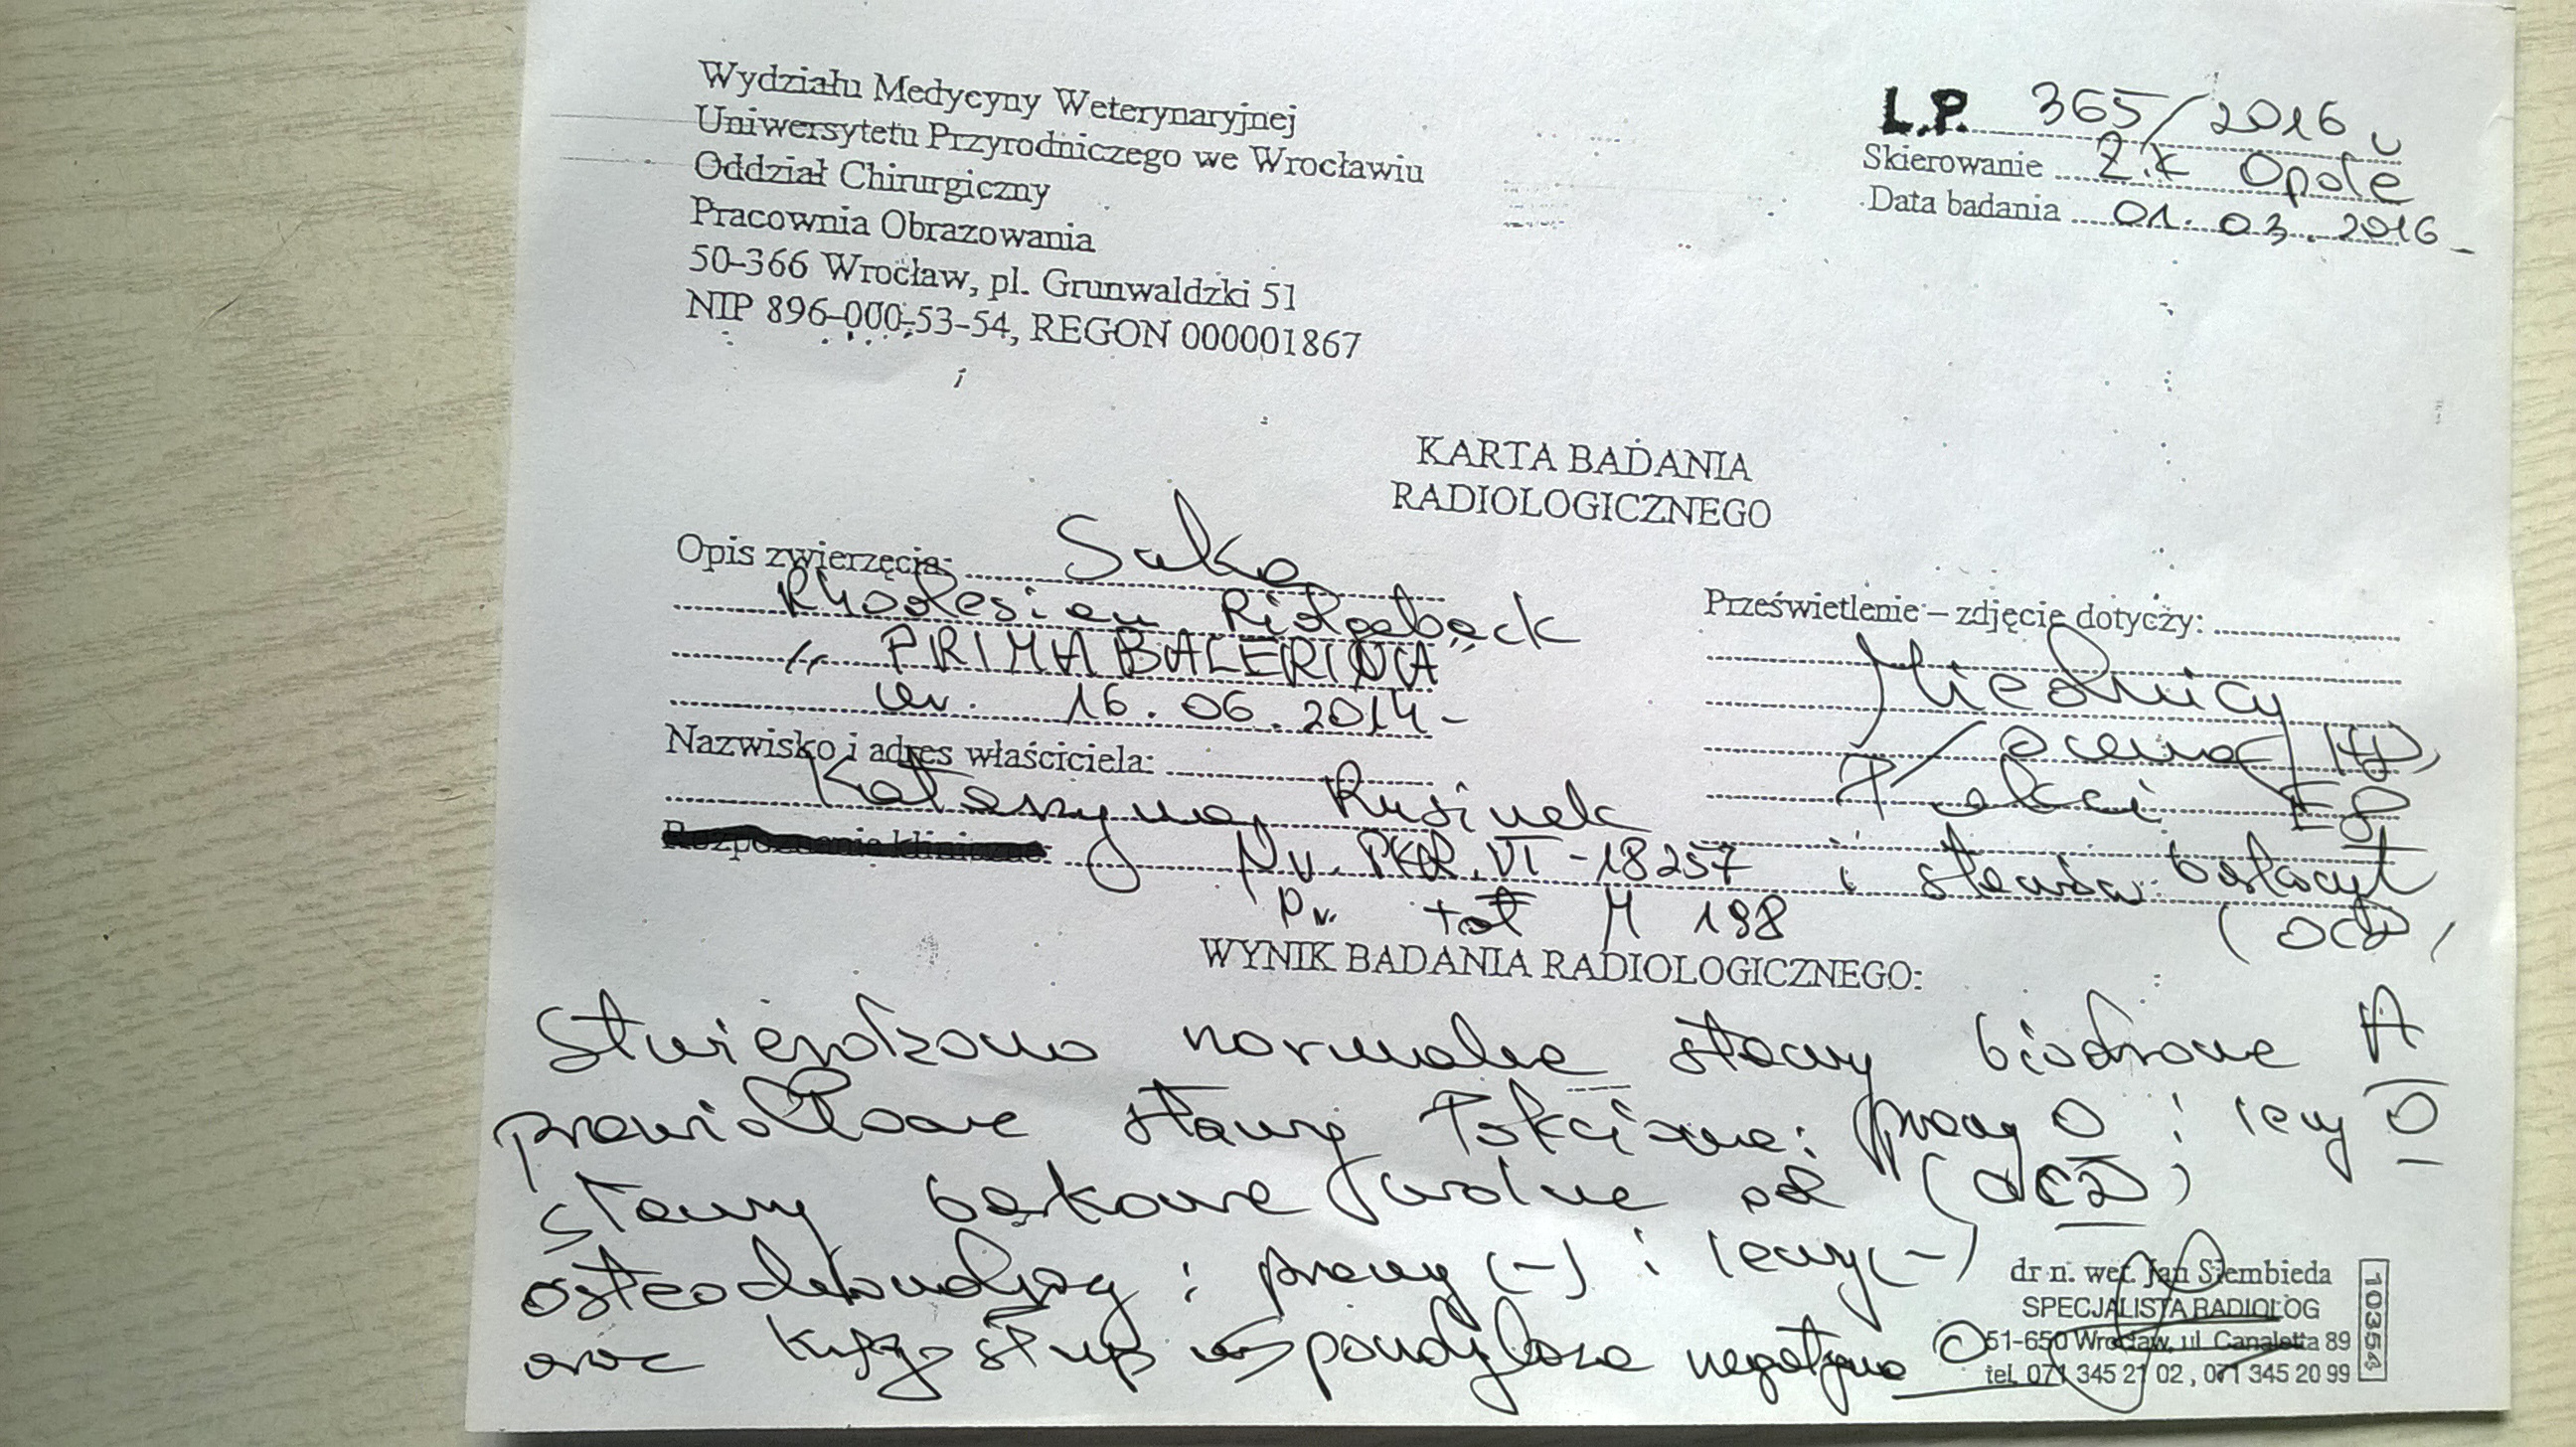 Wydziału Medycyny Weterynaryjnej
Uniwersytetu Przyrodniczego we Wrocławiu
Oddział Chirurgiczny
Pracownia Obrazowania
50-366 Wrocław, pl. Grunwaldzki 51
NIP 896-000-53-54, REGON 000001867
L.P. 365/2016
Skierowanie Z.K Opole
Data badania 01.03.2016
KARTA BADANIA
RADIOLOGICZNEGO
Opis zwierzęcia: Suka
Rhodesian Ridgeback
"PRIMABALERINA"
ur. 16.06.2014
Nazwisko i adres właściciela:
Katarzyna Rusinek
Nr. PKR.VI-18257
Nr. tat M 198
Prześwietlenie – zdjęcie dotyczy:
Miednicy
ocena HD
Łokci ED
i stawów barkowych
(OCD)
WYNIK BADANIA RADIOLOGICZNEGO:
Stwierdzono normalne stawy biodrowe A
prawidłowe stawy łokciowe: prawy 0 i lewy 0
stawy barkowe wolne od (OCD)
prawy (-) i lewy (-)
oraz kręgosłup spondyloza negatywna 0
dr n. wet. Jan Siembieda
SPECJALISTA RADIOLOG
51-650 Wrocław, ul. Canaletta 89
tel. 071 345 21 02, 071 345 20 99
10354